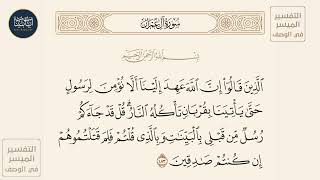 التفسير
الميسر
في الوصف
سورة آل عمران
بسم الله الرحمن الرحيم
ٱلَّذِينَ قَالُوٓاْ إِنَّ ٱللَّهَ عَهِدَ إِلَيۡنَآ أَلَّا نُؤۡمِنَ لِرَسُولٍ
حَتَّىٰ يَأۡتِيَنَا بِقُرۡبَانٖ تَأۡكُلُهُ ٱلنَّارُۗ قُلۡ قَدۡ جَآءَكُمۡ
رُسُلٞ مِّن قَبۡلِي بِٱلۡبَيِّنَٰتِ وَبِٱلَّذِي قُلۡتُمۡ فَلِمَ قَتَلۡتُمُوهُمۡ
إِن كُنتُمۡ صَٰدِقِينَ ١٨٣
التفسير
الميسر
في الوصف